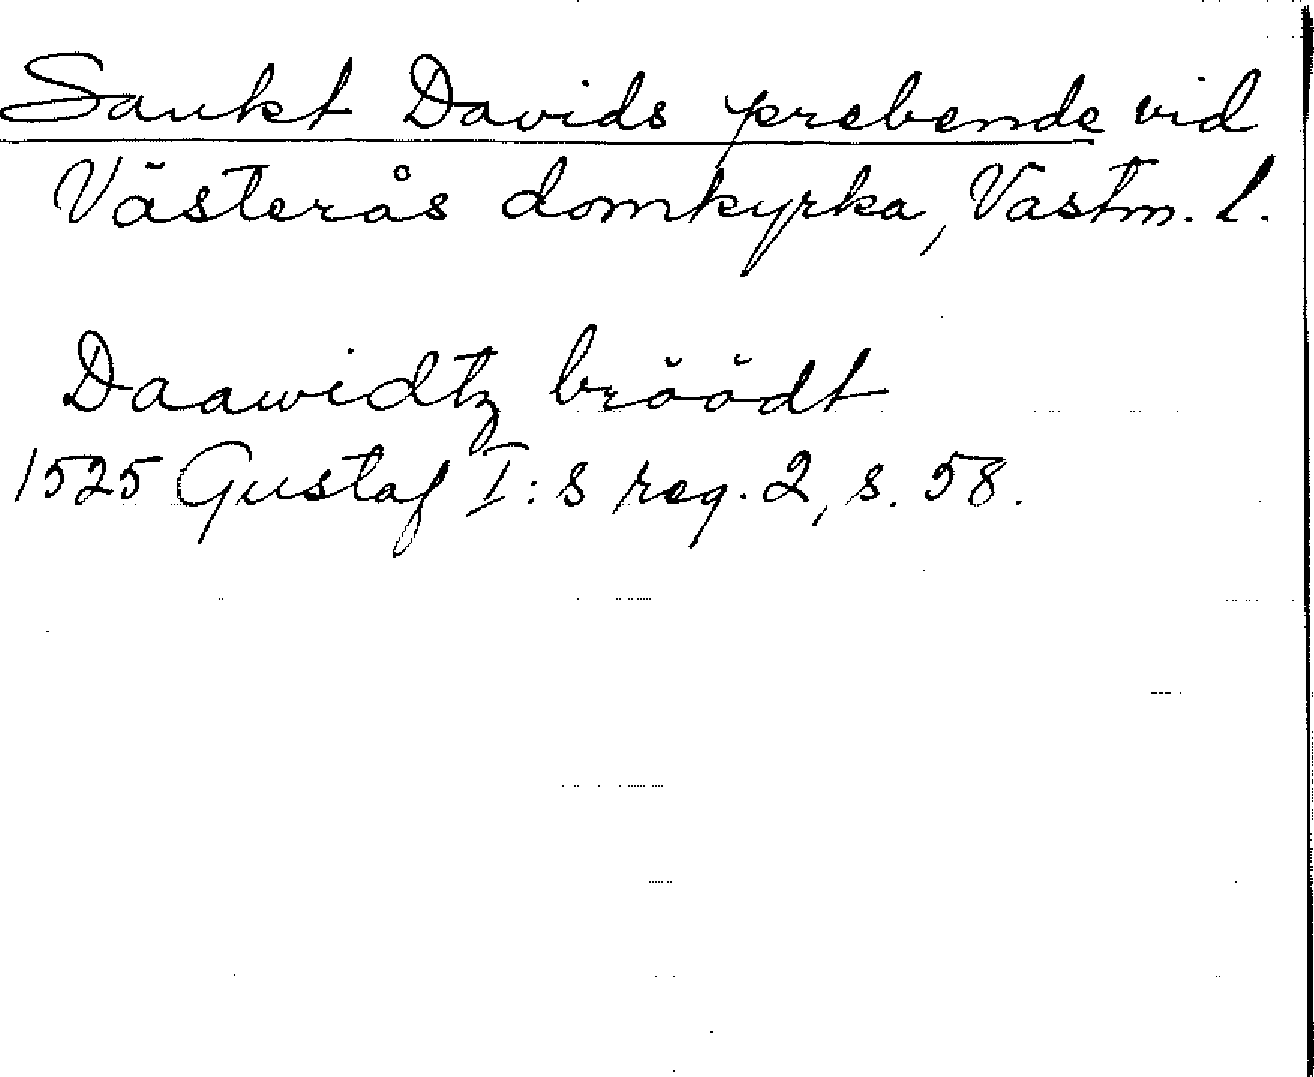 Sankt Davids prebende vid
Västerås domkyrka, Västm. l.
Daawidtz bröödt
1525 Gustaf I:s reg. 2, s. 58.